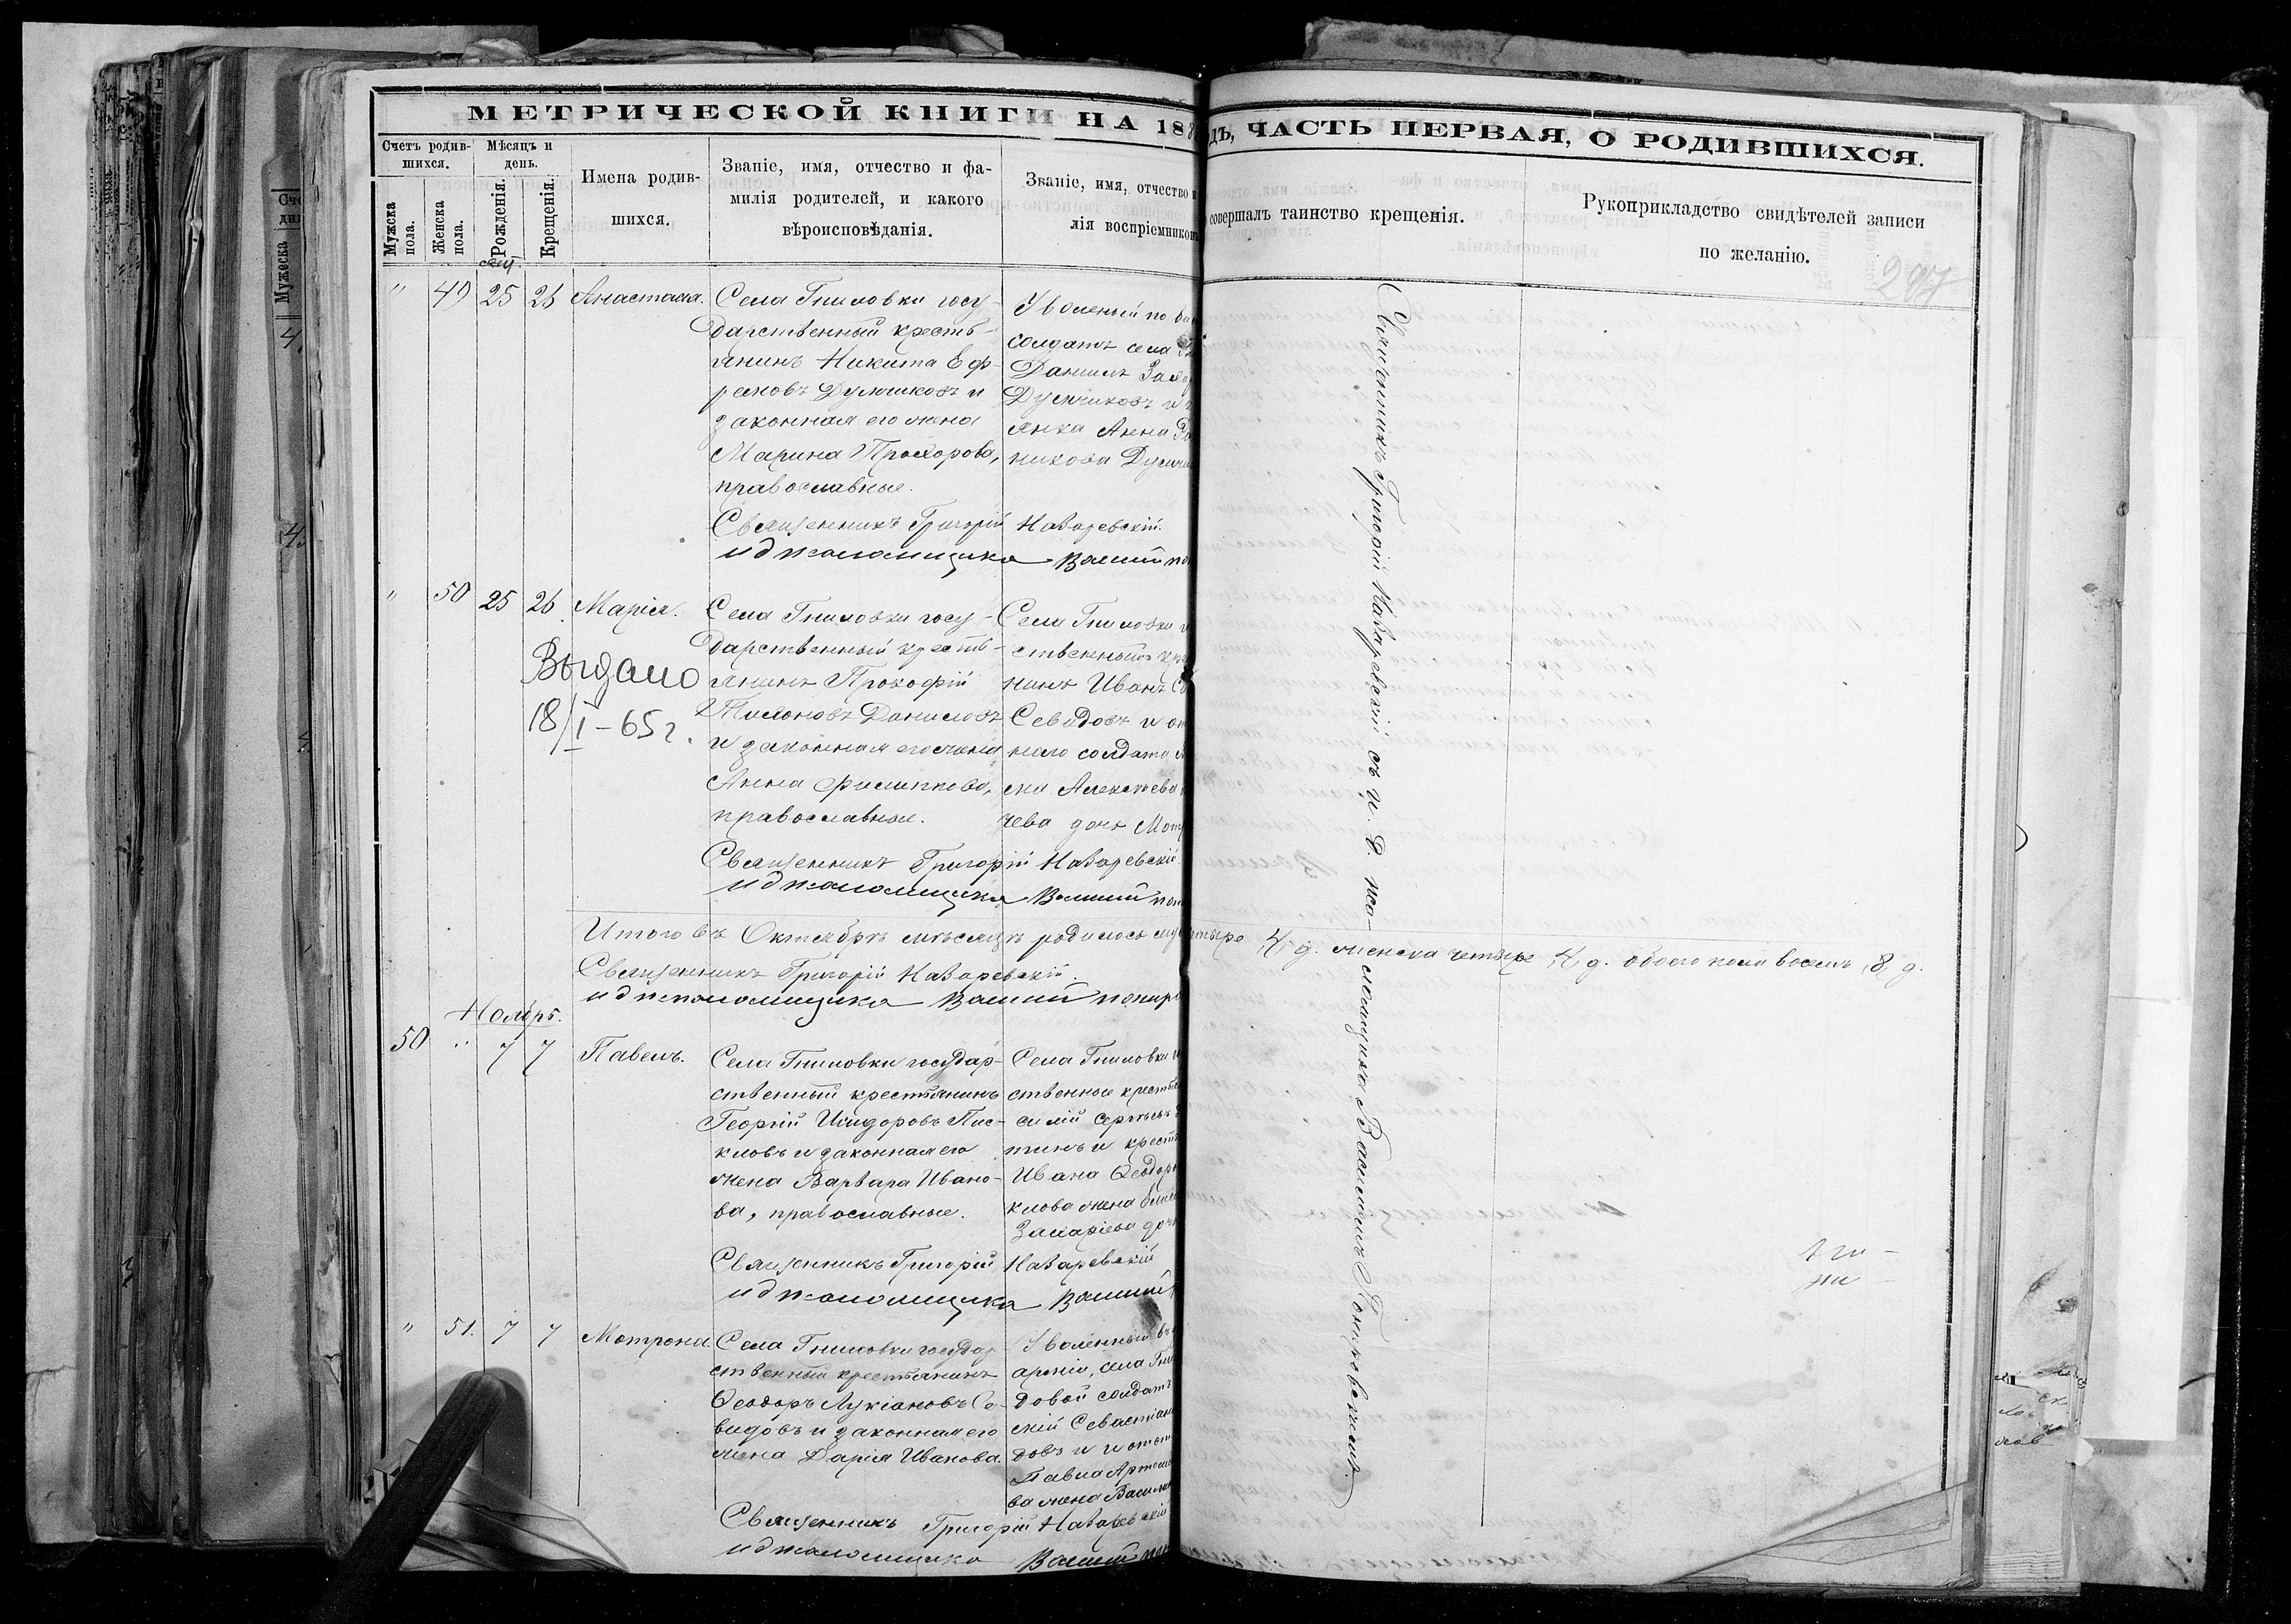 МЕТРИЧЕСКОЙ КНИГИ НА 188
дъ, ЧАСТЬ ПЕРВАЯ, О РОДИВШИХСЯ.
Счетъ родив-
шихся.
Мужска
пола.
Женска
пола.
Мѣсяцъ и
день.
Рожденія.
Крещенія.
Имена родив-
шихся.
Званіе, имя, отчество и фа-
милія родителей, и какого
вѣроисповѣданія.
Званіе, имя, отчество и
лія воспріемников
совершалъ таинство крещенія.
Рукоприкладство свидѣтелей записи
по желанію.
297
" 49 25 26 Анастасія.
Села Гниловки госу-
дарственный кресть-
янинъ Никита Еф-
ремовъ Думчиковъ и
законная его жена
Марина Прохорова,
православные.
Уволеный по би
солдатъ села Гн
Даніилъ Захар
Думчиковъ и к
янка Анна
никова Думчи
Священникъ Григорій Наваревскій.
и д псаломщика Василій
" 50 25 26 Марія.
Выдано
18/I-65г.
Села Гниловки госу-
дарственный кресть-
янинъ Прокофій
Тихоновъ Даниловъ
и законная его жена
Анна Филиппова,
православные.
Села Гниловки г
ственный кре
нинъ Иванъ С
Севидовъ и от
ного солдата
ма Алексѣева
чева дочь Мот
Священникъ Григорій Наваревскій.
и д псаломщика Василій
Итого въ Октябрѣ мѣсяцѣ родилось му тыре, 4, д. женска четыре, 4, д. обоего пола восемь, 8, д.
Священникъ Григорій Наваревскій.
и д псаломщика Василій
Ноябрь.
50 " 7 7 Павелъ.
Села Гниловки государ-
ственный крестьянинъ
Георгій Исидоровъ Пис-
кловъ и законная его
жена Варвара Ивано-
ва, православные.
Села Гниловки г
ственные крестья
симій Сергѣевъ
тинъ и кресть
Ивана Ѳеодоро
клова жена
Захаріева доч
Священникъ Григорій Наваревскій
и д псаломщика Василій
" 51. 7 7 Мотрона.
Села Гниловки государ-
ственный крестьянинъ
Ѳеодоръ Лукіановъ Се-
видовъ и законная его
жена Дарія Иванова.
Уволенный въ
армію, села Гни
довой солдатъ
мій Севастіан
довъ и и отст
Павла Артем
ва жена Васил
Священникъ Григорій Наваревскій
и д псаломщика Василій
Священникъ Григорій Наваревскій съ и. д. пса-
ломщика Василіемъ